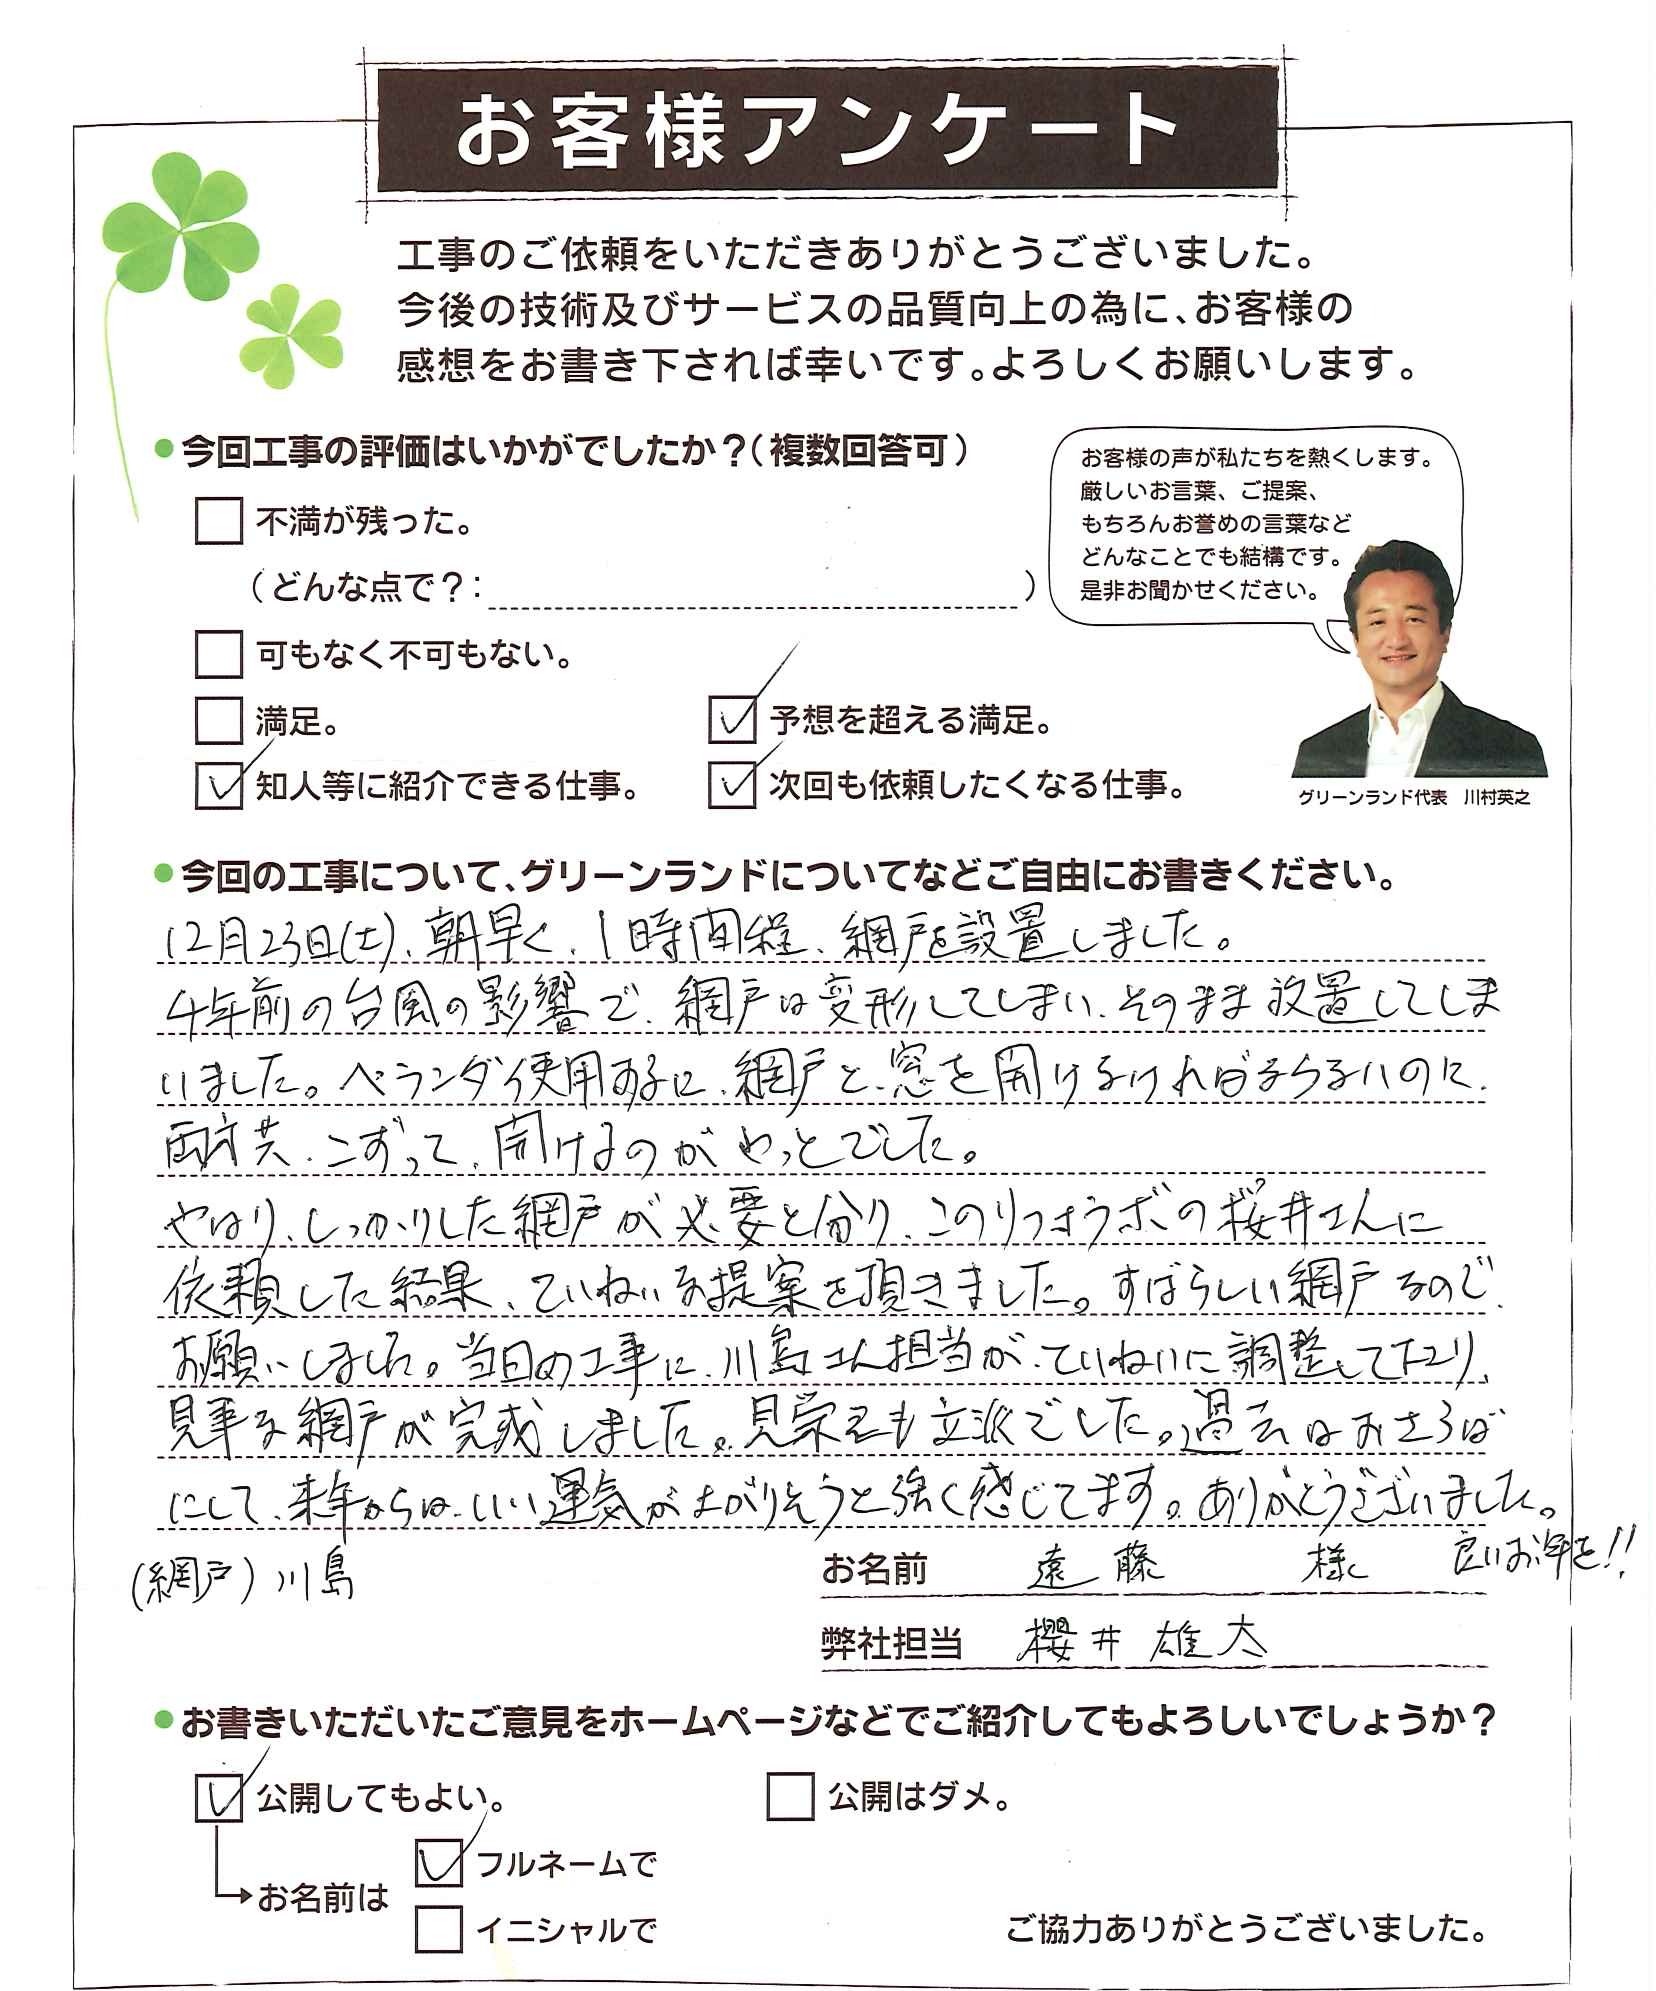 お客様アンケート
工事のご依頼をいただきありがとうございました。
今後の技術及びサービスの品質向上の為に、お客様の
感想をお書き下されば幸いです。よろしくお願いします。
今回工事の評価はいかがでしたか？（複数回答可）
お客様の声が私たちを熱くします。
厳しいお言葉、ご提案、
もちろんお誉めの言葉など
どんなことでも結構です。
是非お聞かせください。
不満が残った。
（どんな点で？： ）
可もなく不可もない。
満足。
予想を超える満足。
知人等に紹介できる仕事。
次回も依頼したくなる仕事。
グリーンランド代表 川村英之
今回の工事について、グリーンランドについてなどご自由にお書きください。
12月23日(土)、朝早く、1時間程、網戸を設置しました。
4年前の台風の影響で、網戸は変形してしまい、そのまま放置してしま
いました。ベランダ使用するに、網戸と、窓を開けなければならないのに、
両方共、こずって、開けるのがやっとでした。
やはり、しっかりした網戸が必要と分り、このリフォラボの桜井さんに
依頼した結果、ていねいな提案を頂きました。すばらしい網戸なので、
お願いしました。当日の工事に、川島さん担当が、ていねいに調整して下さり、
見事な網戸が完成しました。見栄えも立派でした。過去はおさらば
にして、来年からは、いい運気が上がりそうと強く感じてます。ありがとうございました。
良いお年を!!
(網戸) 川島
お名前 遠藤 様
弊社担当 櫻井雄大
お書きいただいたご意見をホームページなどでご紹介してもよろしいでしょうか？
公開してもよい。
公開はダメ。
お名前は
フルネームで
イニシャルで
ご協力ありがとうございました。